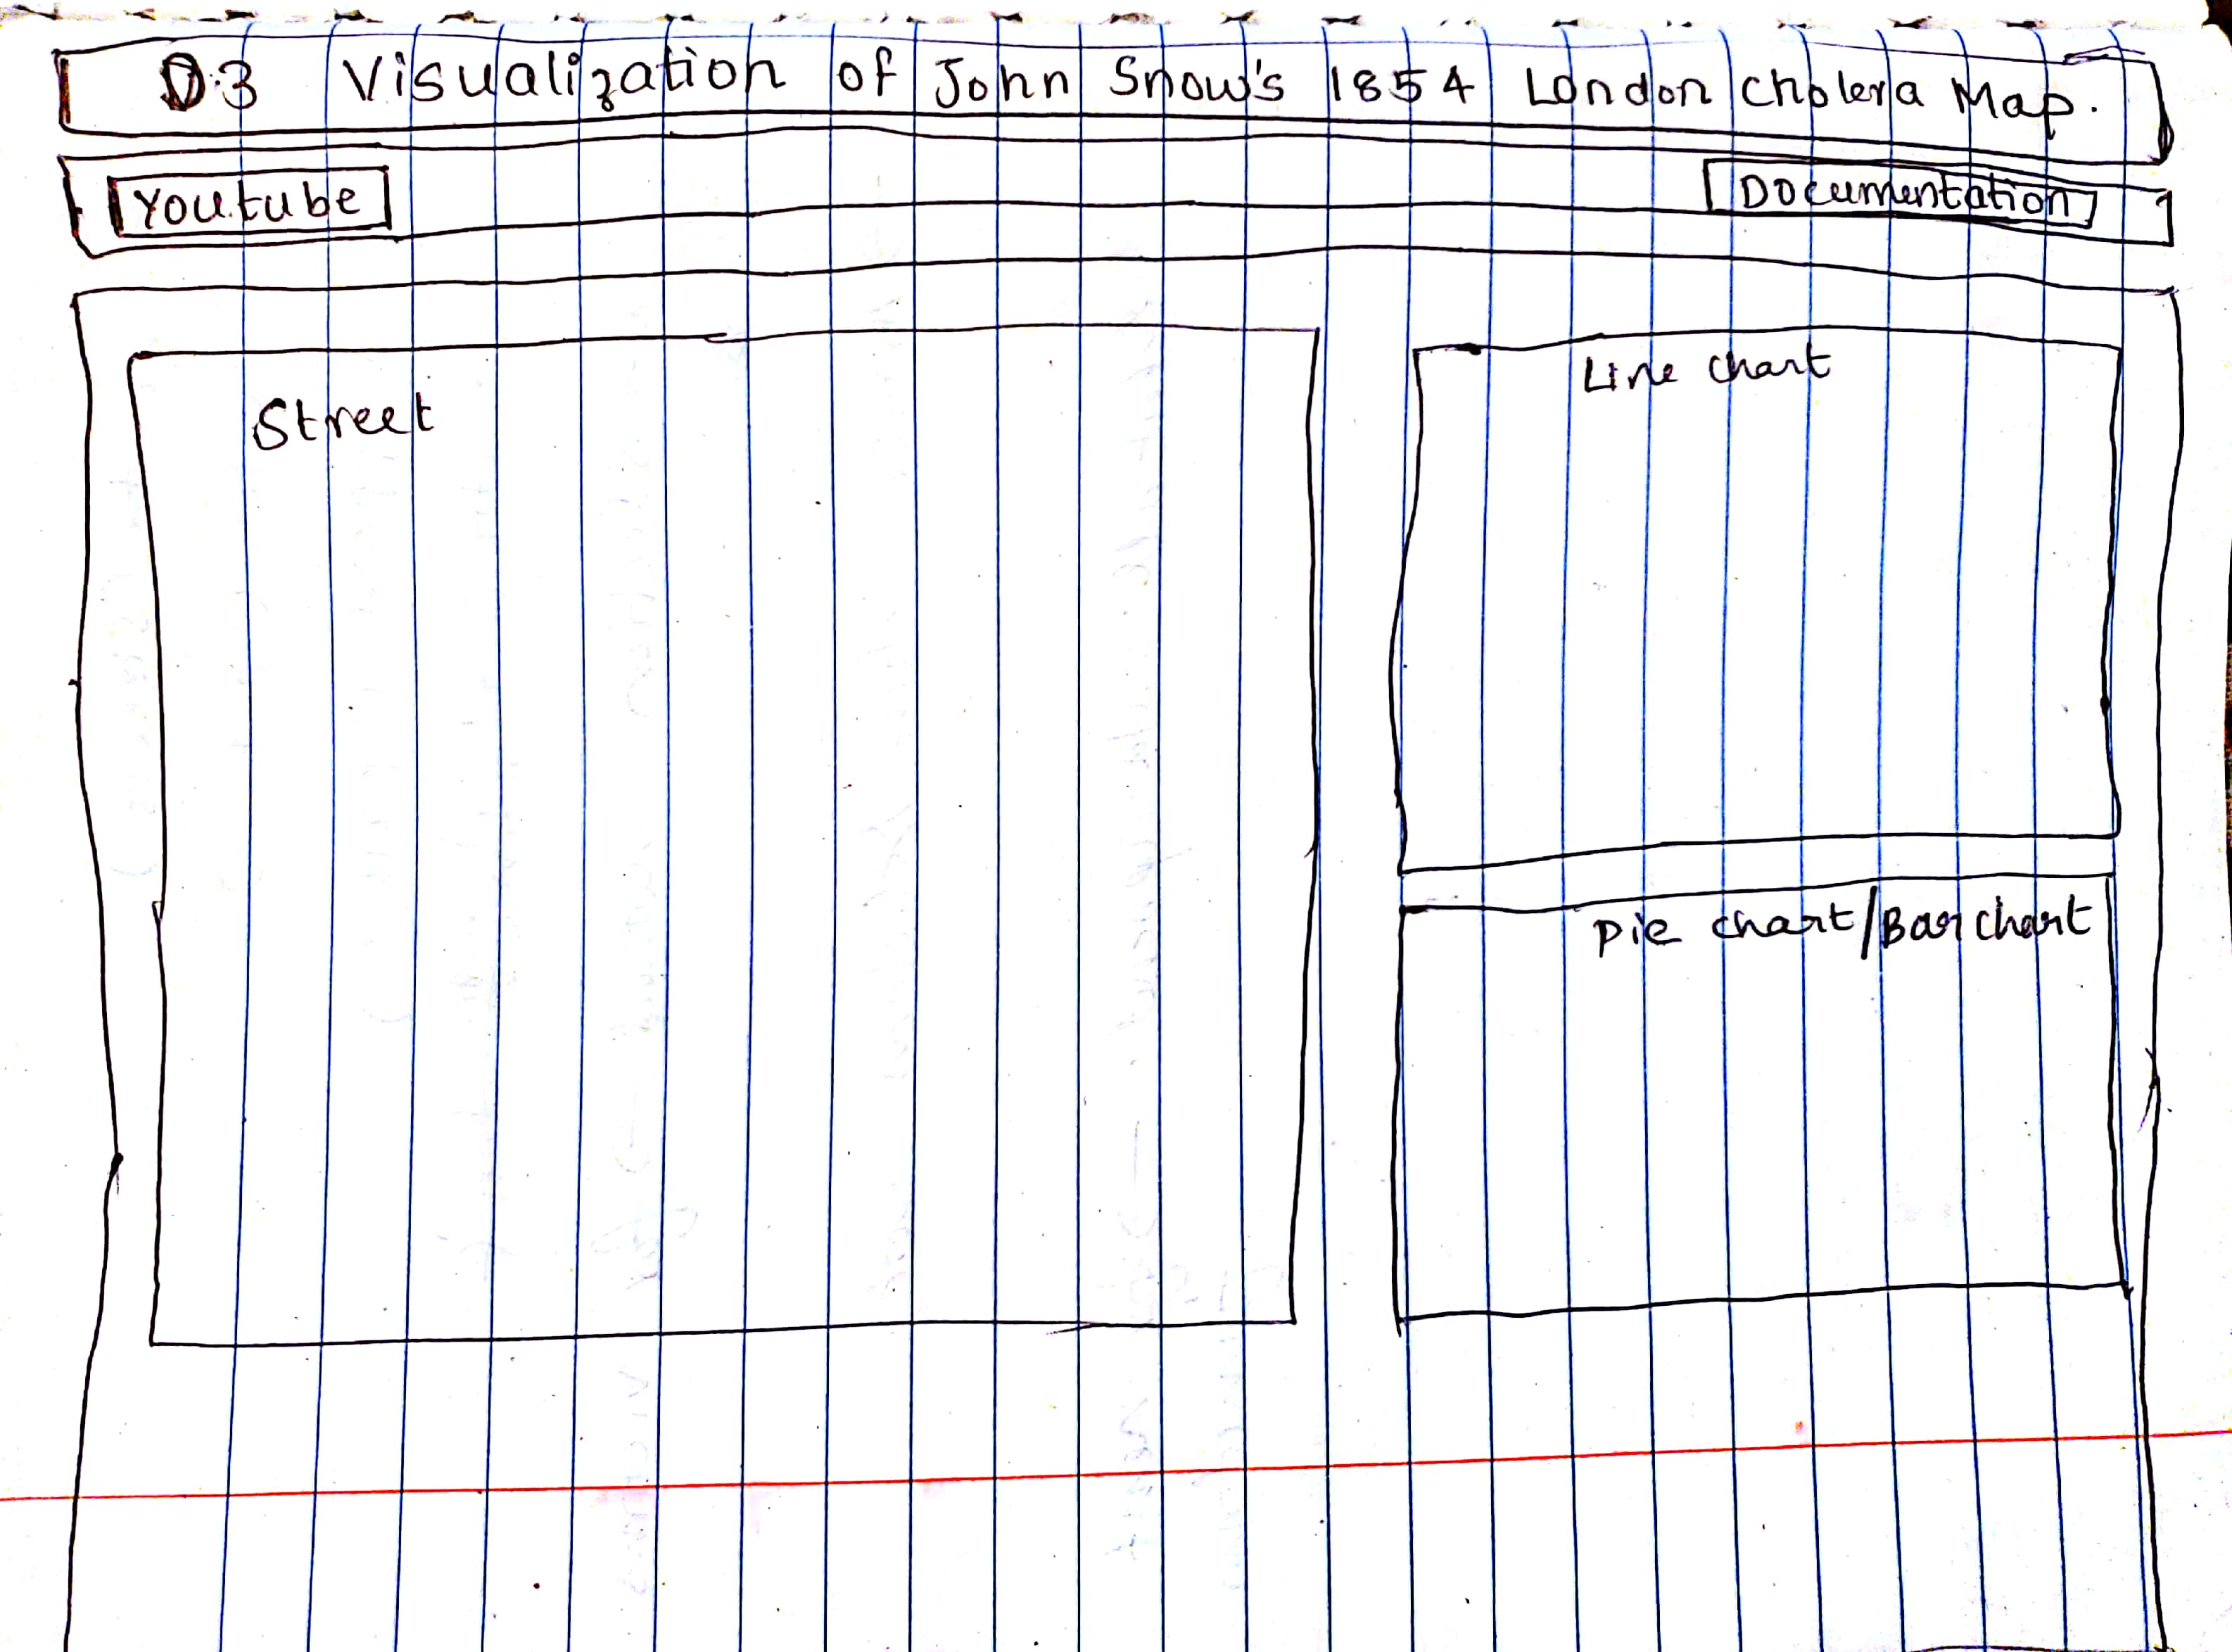 D3 Visualization of John Snow's 1854 London Cholera Map.
Youtube
Documentation
Street
Line chart
Pie chart/Bar chart